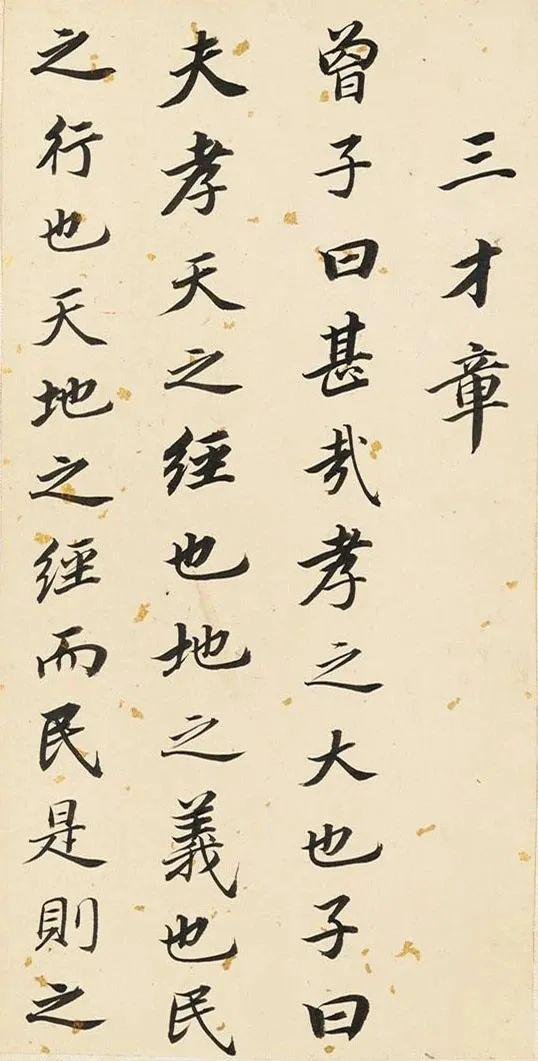 三才章
曾子曰甚哉孝之大也子曰
夫孝天之經也地之義也民
之行也天地之經而民是則之